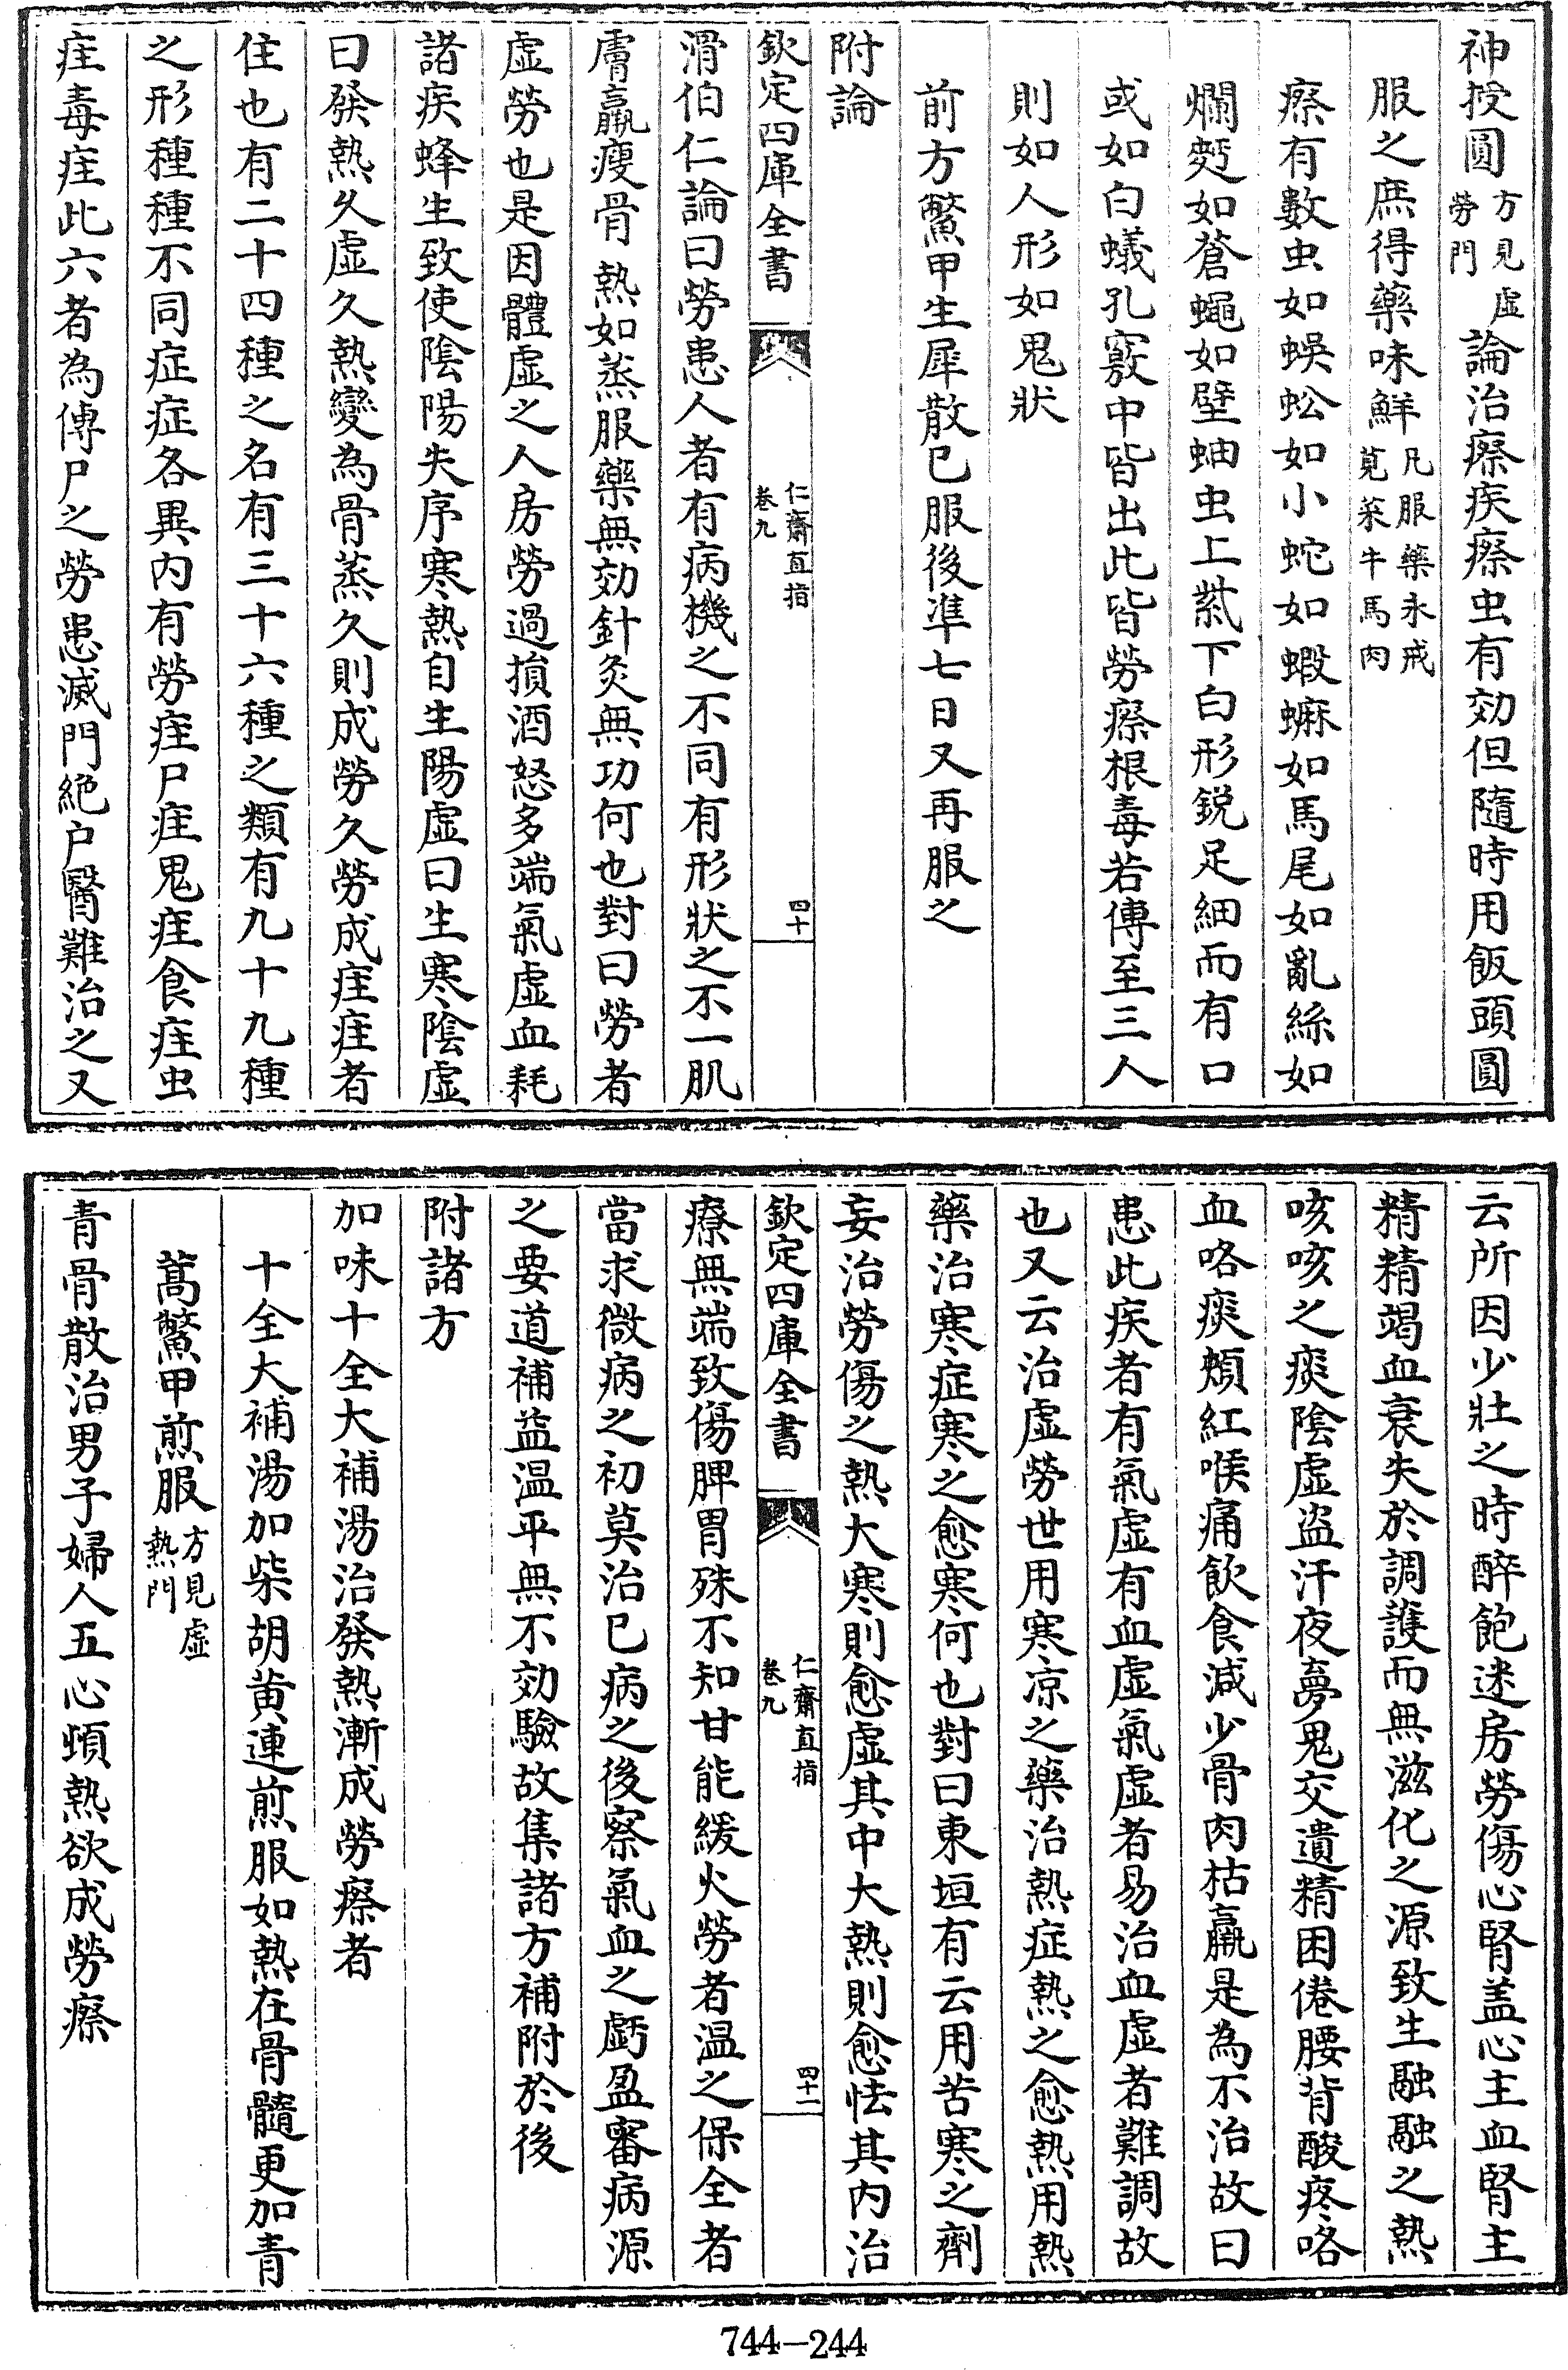 神授圓方見虛勞門論治瘵疾瘵虫有効但隨時用飯頭圓
服之庶得藥味鮮凡服藥永戒莧菜牛馬肉
瘵有數虫如蜈蚣如小蛇如蝦蟆如馬尾如亂絲如
爛麫如蒼蠅如壁蚰虫上紫下白形銳足細而有口
或如白蟻孔竅中皆出此皆勞瘵根毒若傳至三人
則如人形如鬼狀
前方鱉甲生犀散已服後準七日又再服之
附論
欽定四庫全書
仁齋直指
卷九
四十
滑伯仁論曰勞患人者有病機之不同有形狀之不一肌
膚羸瘦骨熱如蒸服藥無効針灸無功何也對曰勞者
虛勞也是因體虛之人房勞過損酒怒多端氣虛血耗
諸疾蜂生致使陰陽失序寒熱自生陽虛曰生寒陰虛
曰發熱久虛久熱變為骨蒸久則成勞久勞成疰疰者
住也有二十四種之名有三十六種之類有九十九種
之形種種不同症症各異內有勞疰尸疰鬼疰食疰虫
疰毒疰此六者為傳尸之勞患滅門絕户醫難治之又
云所因少壯之時醉飽迷房勞傷心腎盖心主血腎主
精精竭血衰失於調護而無滋化之源致生融融之熱
咳咳之痰陰虛盗汗夜夢鬼交遺精困倦腰背酸疼咯
血咯痰頰紅喉痛飲食減少骨肉枯羸是為不治故曰
患此疾者有氣虛有血虛氣虛者易治血虛者難調故
也又云治虛勞世用寒凉之藥治熱症熱之愈熱用熱
藥治寒症寒之愈寒何也對曰東垣有云用苦寒之劑
妄治勞傷之熱大寒則愈虛其中大熱則愈怯其內治
療無端致傷脾胃殊不知甘能緩火勞者温之保全者
當求微病之初莫治已病之後察氣血之虧盈審病源
之要道補益温平無不効驗故集諸方補附於後
附諸方
加味十全大補湯治發熱漸成勞瘵者
十全大補湯加柴胡黃連煎服如熱在骨髓更加青
蒿鱉甲煎服方見虛熱門
青骨散治男子婦人五心煩熱欲成勞瘵
欽定四庫全書
仁齋直指
卷九
四十一
744-244